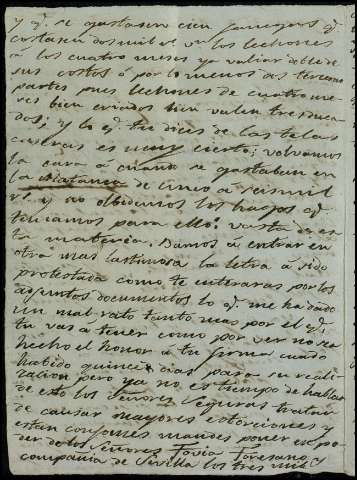 y q.e se gastasen cien jamones q.e
costasen dos mil rs. vn. los lechones
á los cuatro meses ya valian doble de
sus costos ó por lo menos dos terceras
partes pues lechones de cuatro me-
ses bien criados bien valen tres duca-
dos; y lo q.e tu dices de las telas
es muy cierto; volvamos
la cara á cuando se gastaban en
la matanza de cinco á seis mil
rs. y no olbidemos los hagos q.e
teniamos para ello: vasta de es-
ta materia. Bamos á entrar en
otra mas lastimosa la letra á sido
protestada como te enteraras por los
adjuntos documentos lo q.e me ha dado
un mal rato tanto mas por el q.e
tu vas a tener como por ver no se a
hecho el honor a tu firma cuando
habido quince dias para su reali-
zacion pero ya no es tiempo de hablar
de esto los Señores tratan
de causar mayores estorciones y
estan conformes mandes poner en po-
der de los Señores Tovia y
compañia de Sevilla los tres mil